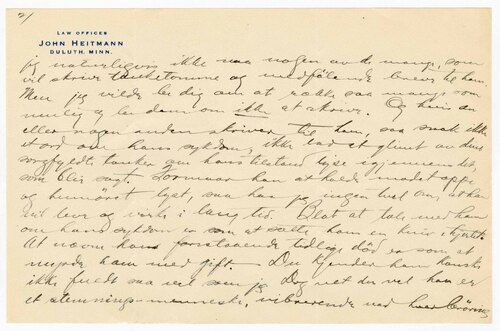 2/
LAW OFFICES
JOHN HEITMANN
DULUTH, MINN.
jeg naturligvis ikke naa nogen av de mange, som
vil skrive tanketomme og medfølende breve til ham.
Men jeg vilde be dig om at søke saa mange som
mulig og be dem om ikke at skrive. Og hvis du
eller nogen anden skriver til ham, saa snak ikke
et ord om hans sykdom, ikke lad et glimt av dine
sorgfyldte tanker om hans tilstand lyse igjennem det
som blir sagt. Saa han kan holde modet oppe
og humøret lyst, saa har jeg nogen tvil om, at han
vil leve og virke i lang tid. Blot at tale med ham
om hans sykdom er som at sætte ham en kniv i hjertet.
At nævne hans forestaaende tidlige død er som at
myrde ham med gift. Du kjender ham kanske
ikke fuldt saa vel som jeg. Dog vet du vel han er
et stemnings-menneske, vibrerende ved hver